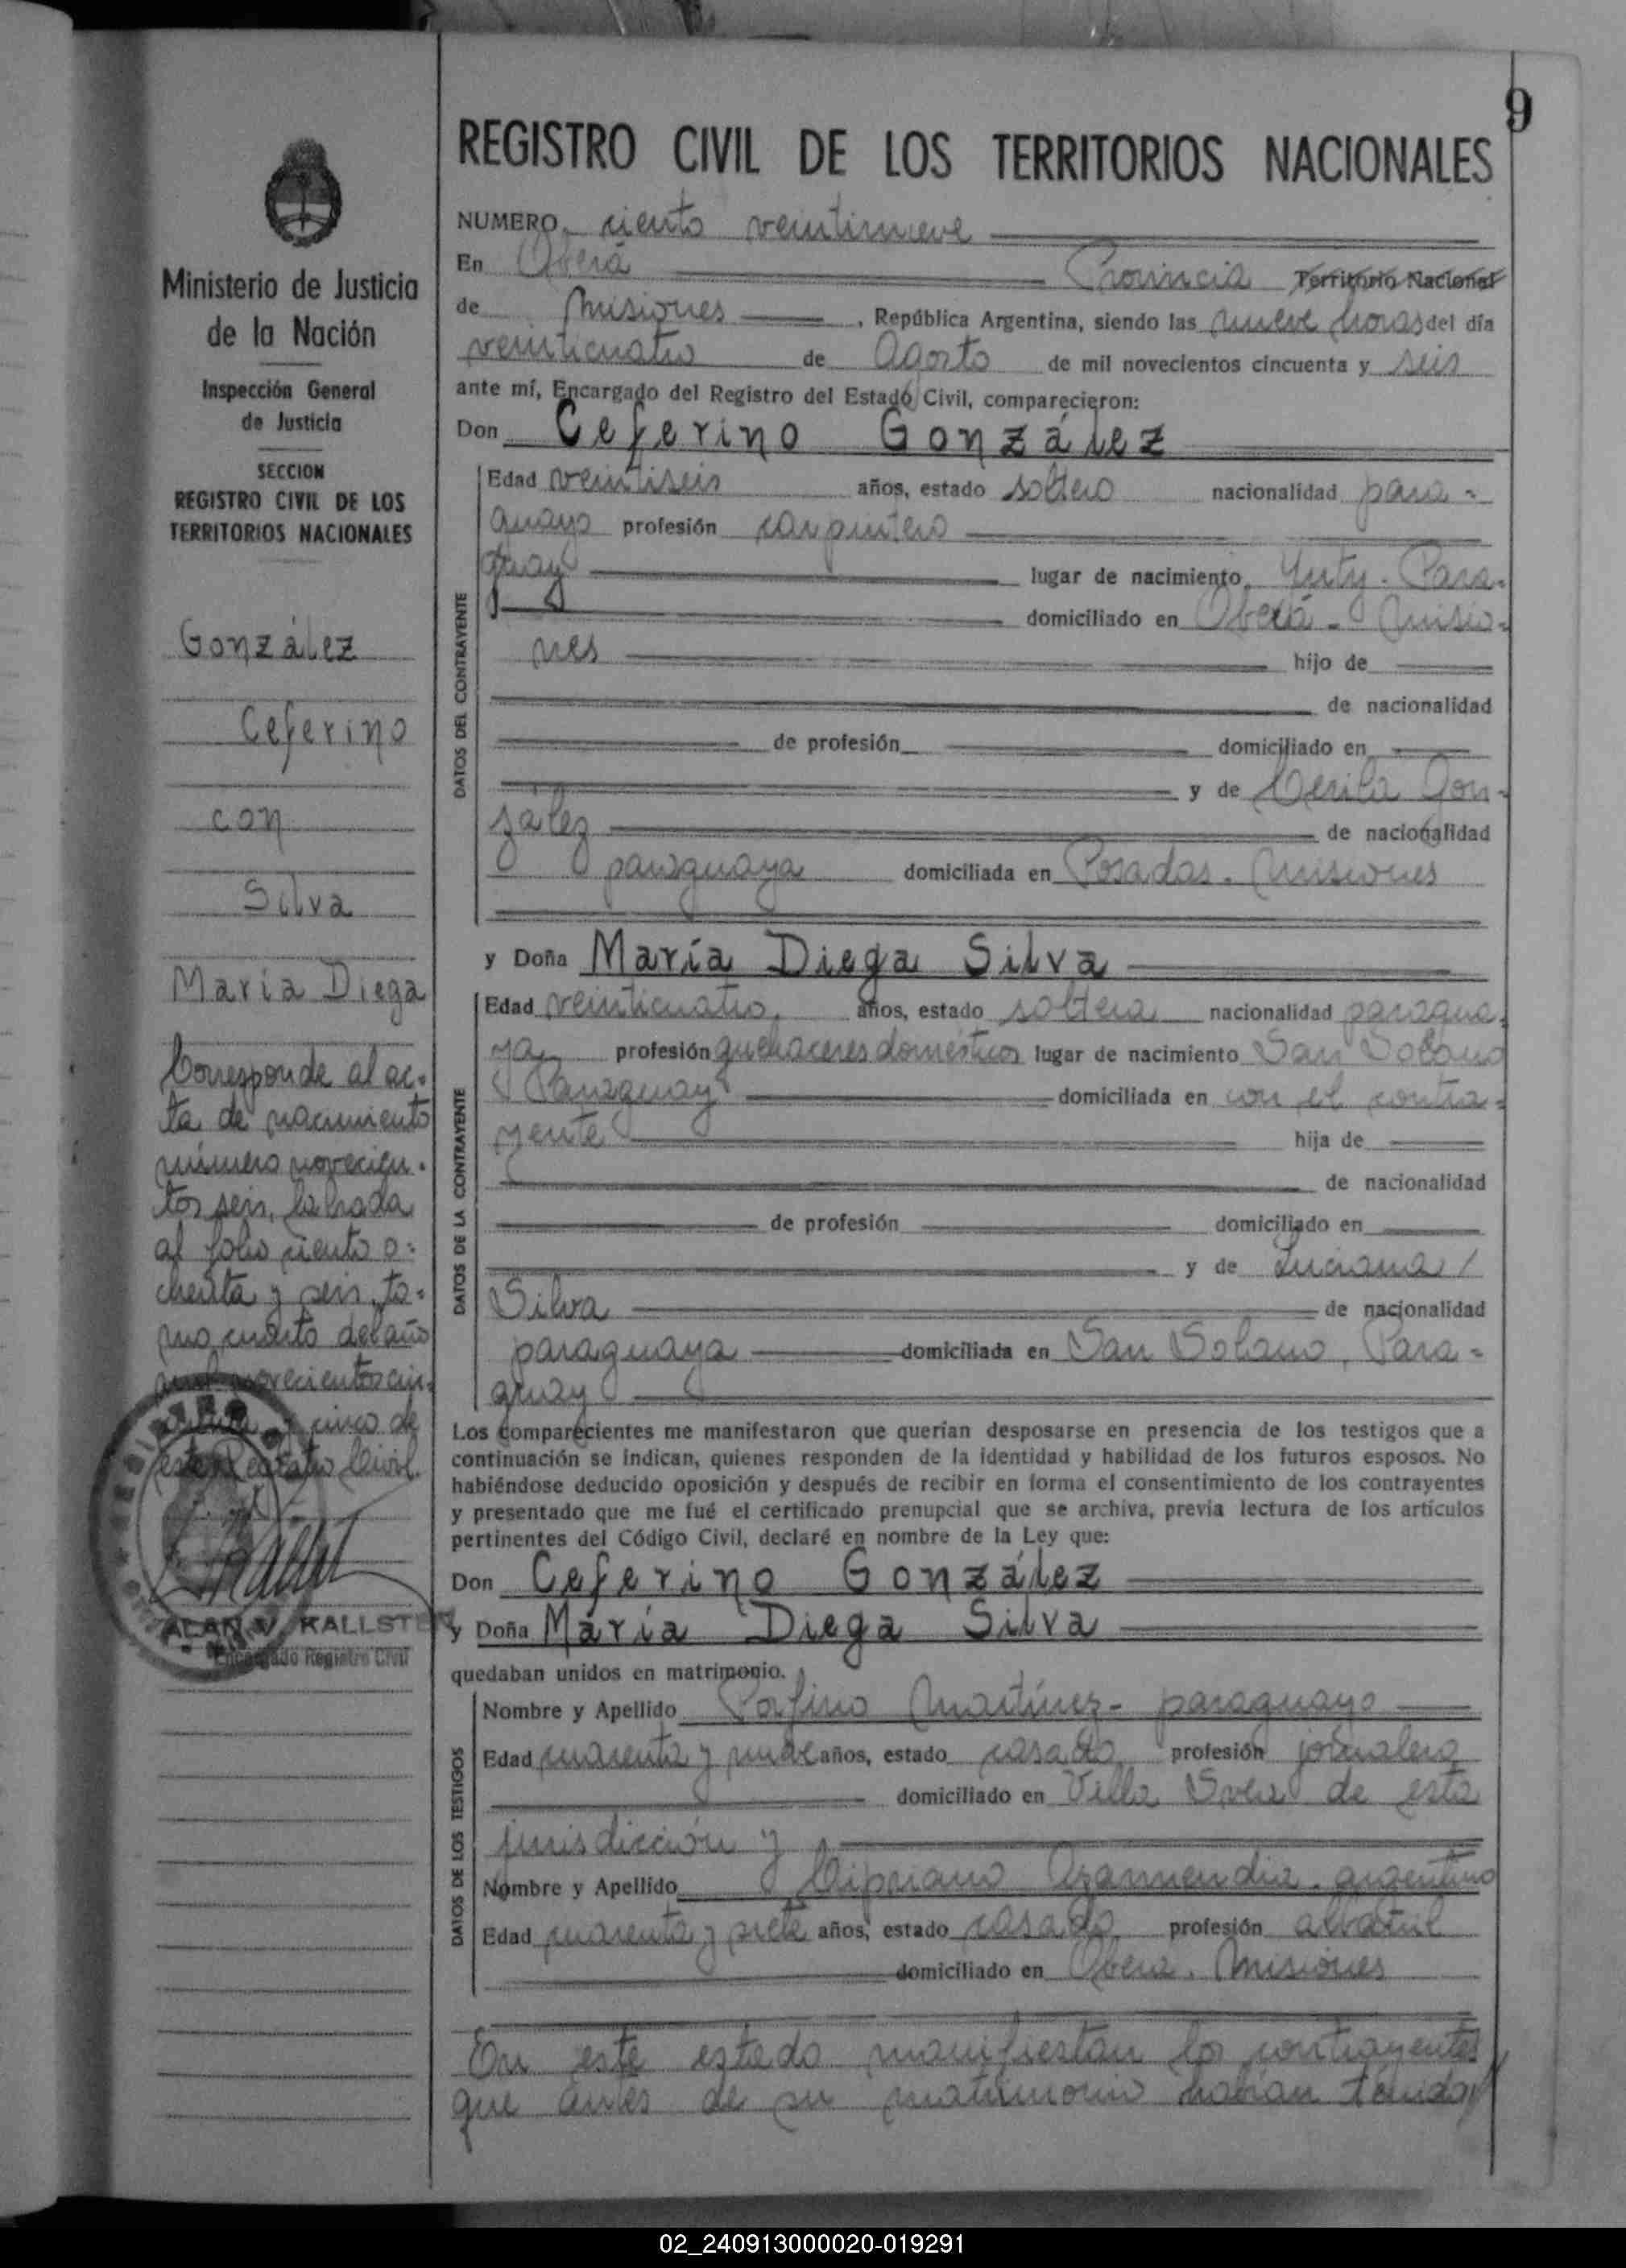 9
REGISTRO CIVIL DE LOS TERRITORIOS NACIONALES
NUMERO ciento veintinueve
En Oberá Provincia Territorio Nacional
de Misiones, República Argentina, siendo las nueve horas del día
veinticuatro de Agosto de mil novecientos cincuenta y seis
ante mí, Encargado del Registro del Estado Civil, comparecieron:
Don Ceferino González
DATOS DEL CONTRAYENTE
Edad veintiseis años, estado soltero nacionalidad para-
guayo profesión carpintero
lugar de nacimiento Yuty - Para-
guay
domiciliado en Oberá - Misio-
nes hijo de
de nacionalidad
de profesión domiciliado en
y de Gon-
zález de nacionalidad
paraguaya domiciliada en Posadas - Misiones
y Doña María Diega Silva
DATOS DE LA CONTRAYENTE
Edad veinticuatro años, estado soltera nacionalidad paragua-
ya profesión quehaceres domésticos lugar de nacimiento San Solano
Paraguay domiciliada en con el contra-
yente hija de
de nacionalidad
de profesión domiciliado en
y de Luciana /
Silva de nacionalidad
paraguaya domiciliada en San Solano, Para-
guay
Los comparecientes me manifestaron que querían desposarse en presencia de los testigos que a
continuación se indican, quienes responden de la identidad y habilidad de los futuros esposos. No
habiéndose deducido oposición y después de recibir en forma el consentimiento de los contrayentes
y presentado que me fué el certificado prenupcial que se archiva, previa lectura de los artículos
pertinentes del Código Civil, declaré en nombre de la Ley que:
Don Ceferino González
y Doña María Diega Silva
quedaban unidos en matrimonio.
DATOS DE LOS TESTIGOS
Nombre y Apellido Martínez - paraguayo
Edad cuarenta y nueve años, estado casado profesión jornalero
domiciliado en Villa Svea de esta
jurisdicción y
Nombre y Apellido Cipriano Azarmendia - argentino
Edad cuarenta y siete años, estado casado profesión albañil
domiciliado en Oberá - Misiones
En este estado manifiestan los contrayentes
que antes de su matrimonio habían tenido
Ministerio de Justicia
de la Nación
Inspección General
de Justicia
SECCION
REGISTRO CIVIL DE LOS
TERRITORIOS NACIONALES
González
Ceferino
con
Silva
María Diega
Corresponde al ac-
ta de nacimiento
número novecien-
tos seis, labrada
al folio ciento o-
chenta y seis, to-
mo cuarto del año
mil novecientos cin-
cuenta y cinco de
este Registro Civil.
ALAN V. KALLSTEN
Encargado Registro Civil
02_240913000020-019291